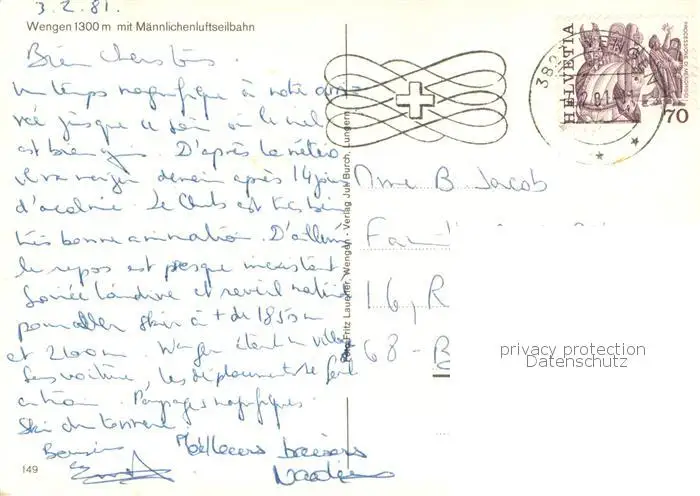 3.2.81.
Wengen 1300 m mit Männlichenluftseilbahn
Bien chers tous.
Un temps magnifique à notre arri-
vée jusque ce soir où le ciel
est bien gris. D'après la météo
il va neiger demain après 14 jours
d'accalmie. Le Club est très bien
très bonne animation. D'ailleurs
le repos est presque inexistant
Soirée tardive et reveil matinal
pour aller skier à + de 1850 m
et 2100 m. Wengen étant un village
sans voiture, les déplacements se font
en train. Paysages magnifiques.
Ski du tonnerre.
Baisers Meilleurs baisers
149
Foto Fritz Lauener, Wengen - Verlag Jul. Burch, Lungern
HELVETIA
70
Mme B. Jacob
16, R
68 - B
privacy protection
Datenschutz